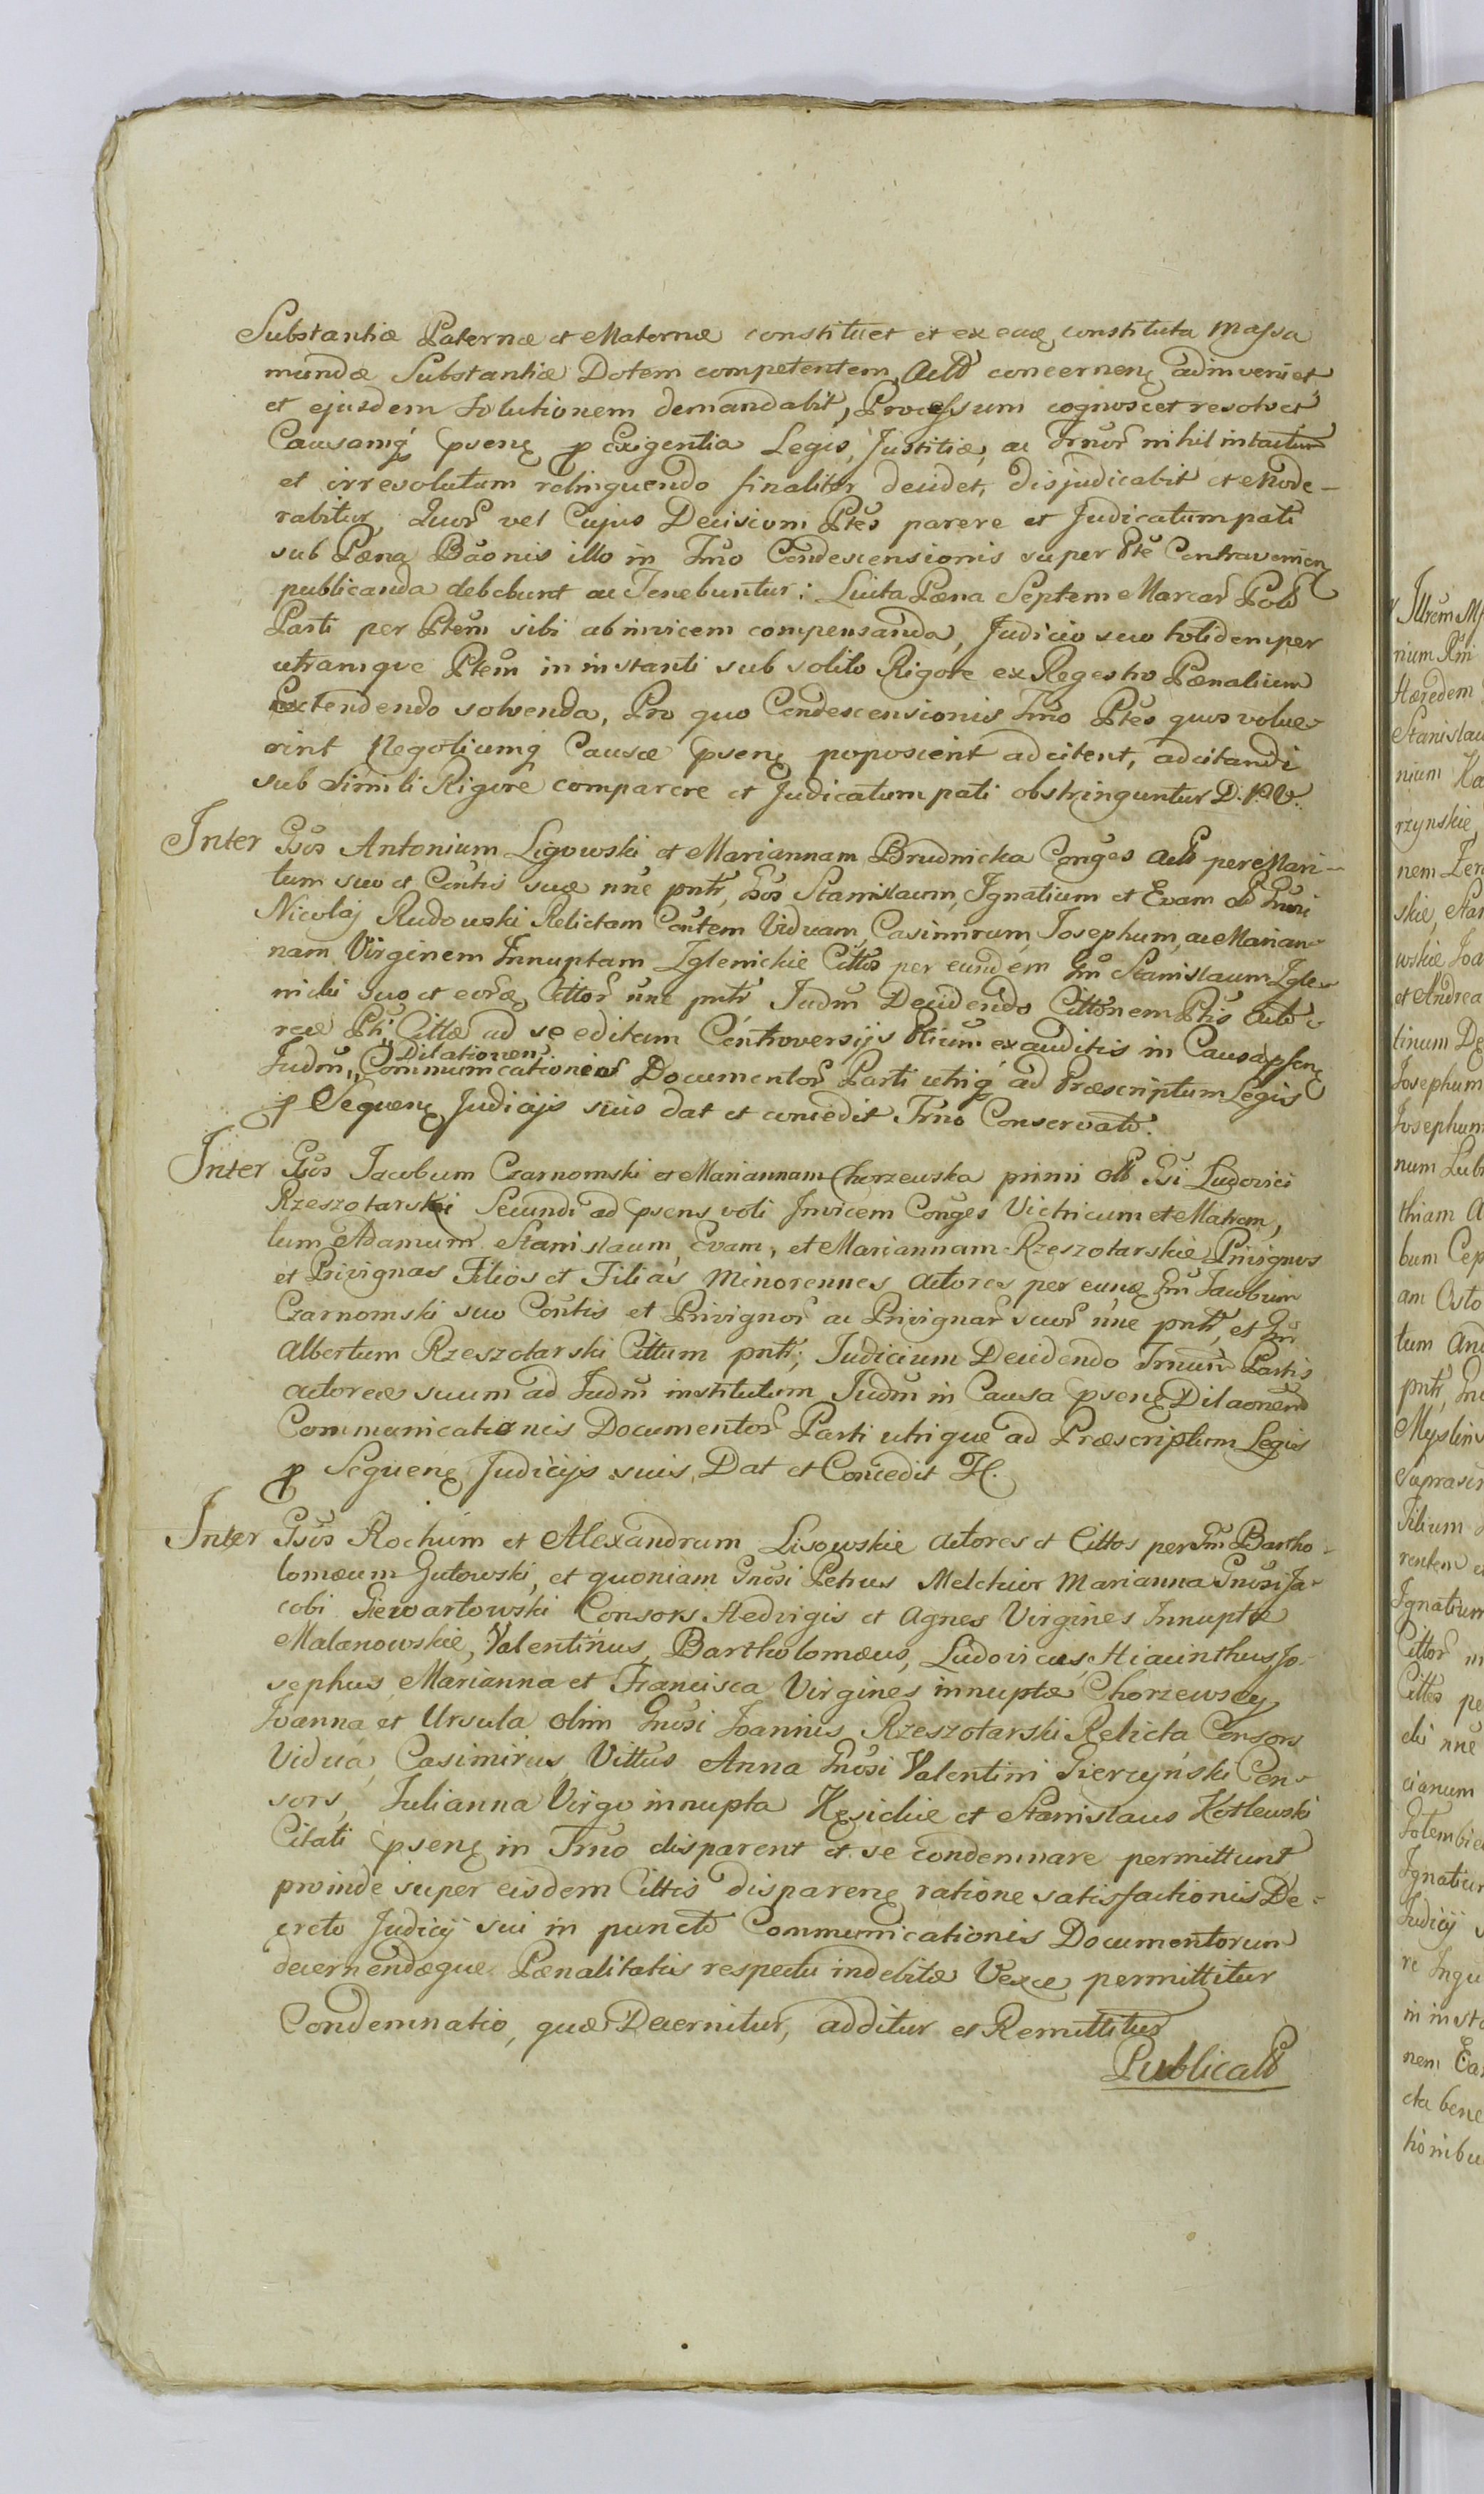 Substantiæ Paternæ et Maternæ constituet et ex eaq constituta Massa
mundæ Substantiæ Dotem competentem, Actō concernenę adinveniet
et ejusdem Solutionem demandabit, Processum cognoscet resolvet
Causamq́ pseneę p Exigentia Legis, Justitiæ, ac Trnor nihil intactum
et irresolutum relinquendo finaliter decidet, disjudicabit et Mode-
rabitur, Quor vel Cujus Decisioni Ptes parere et Judicatum pati
sub Pæna Bãonis illo in Trno Condescensionis super Pte Contravenien
publicanda debebunt ac Tenebuntur: Luita Pæna Septem Marcar Pol
Parti per Ptem sibi ab invicem compensanda, Judicio suo totidem per
utramque Ptem in instanti sub solito Rigore ex Regestro Pænalium
Extendendo solvenda, Pro quo Condescensionis Trno Ptes quos volue-
rint Negotiumq́ Causæ psenę poposcent adcitent, adcitandi
sub Simili Rigore comparere et Judicatum pati obstringuntur D. P. V.
Inter Gsos Antonium Ligowski et Mariannam Brudnicka Conges Act per Mari-
tum suo et Contis suæ nñe pntr, Gsos Stanislaum, Ignatium et Evam olt Gnusi
Nicolaj Rudowski Relictam Contem Viduam, Casimirum, Josephum, ac Marian-
nam Virginem Innuptam Zglenickie Cittos per eundem Gm Stanislaum Zgle-
nicki suo et eorq Cittor nñe pntr Judm Decidendo Cittonem Ptis Acto-
reæ Pti Cittæ ad se editam Controversijs Ptium exauditis in Causa psenę
Judm, Dilationem Communicationis Documentor Parti utriq́ ad Præscriptum Legis
p Sequenę Judicijs suis dat et concedit Trno Conservato.
Inter Gsos Jacobum Czarnomski et Mariannam Chorzewska primi olt Gsi Ludovici
Rzeszotarski Secundi ad psens voti Invicem Conges Victricum et Matrem,
tum Adamum Stanislaum, Evam, et Mariannam Rzeszotarskie Privignos
et Privignas Filios et Filias Minorennes Actores per eunq Gm Jacobum
Czarnomski suo Contis et Privignor ac Privignar suor nñe pntr, et Gm
Albertum Rzeszotarski Cittum pntr, Judicium Decidendo Trnum Partis
Actoreæ suum ad Judm institutum Judm in Causa psenę Dilaonem
Communicationis Documentor Parti utrique ad Præscriptum Legis
p Sequenę Judicijs suis, Dat et Concedit H.
Inter Gsos Rochum et Alexandrum Lisowskie Actores et Cittos per Gm Bartho-
lomæum Gutowski, et quoniam Gnosi Petrus Melchior Marianna Gnosi Ja-
cobi Giewartowski Consors Hedvigis et Agnes Virgines Innuptæ
Malanowskie, Valentinus, Bartholomæus, Ludovicus, Hiacinthus Jo-
sephus, Marianna et Francisca Virgines innuptæ Chorzewscy
Joanna et Ursula olim Gnosi Joannis Rzeszotarski Relicta Consors
Vidua, Casimirus, Vittus Anna Gnosi Valentini Gierczyński Con-
sors, Julianna Virgo innupta Kęsickie et Stanislaus Kotlewski
Citati psenę in Trno disparent et se condemnare permittunt
proinde super eisdem Cittis disparenę ratione satisfactionis De-
creto Judicij sui in puncto Communicationis Documentorum
decernendæque Pænalitatis respectu indebitæ Vexæ permittitur
Condemnatio, quæ Decernitur, additur et Remittitur
Publicatō